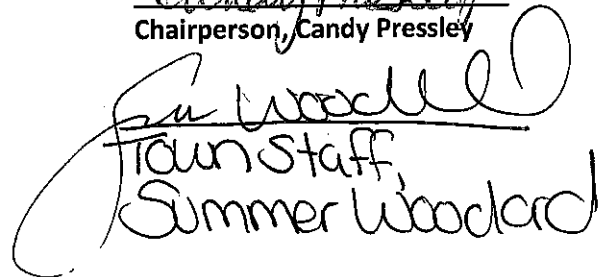 Chairperson, Candy Pressley
Woodard
Town Staff,
Summer Woodard